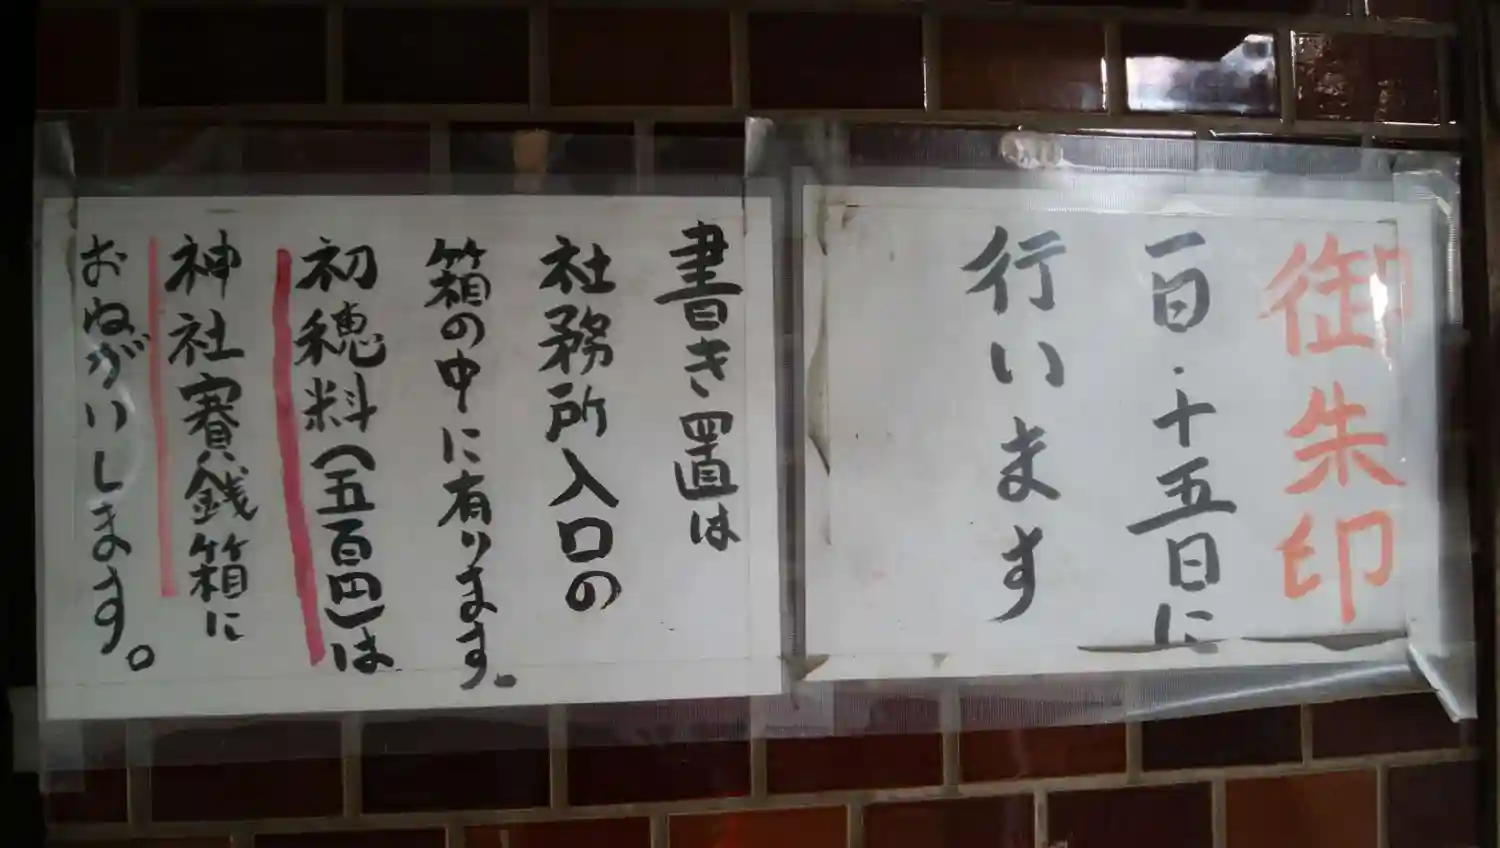 御朱印
一日・十五日に
行います
書き置は
社務所入口の
箱の中に有ります。
初穂料(五百円)は
神社賽銭箱に
おねがいします。